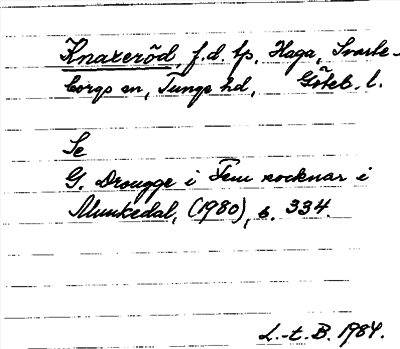 Knaxeröd, f.d. tp, Haga, Svarte-
borgs sn, Tunge hd, Göteb. l.
Se
G. Drougge i Fem socknar i
Munkedal, (1980), s. 334.
L.-t. B. 1984.